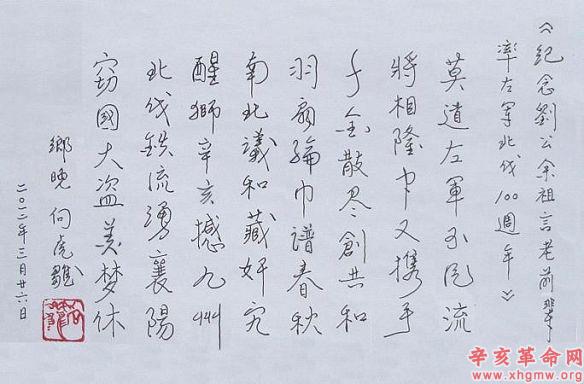 《纪念劉公余祖言老前輩
率左軍北伐100週年》
莫道左軍不风流
將相隆中又携手
千金散尽創共和
羽扇綸巾谱春秋
南北議和藏奸宄
醒獅辛亥撼九州
北伐鉄流湧襄陽
窃國大盗美梦休
鄉晚 向虎雛
二〇一二年三月廿六日
辛亥革命网
www.xhgmw.org